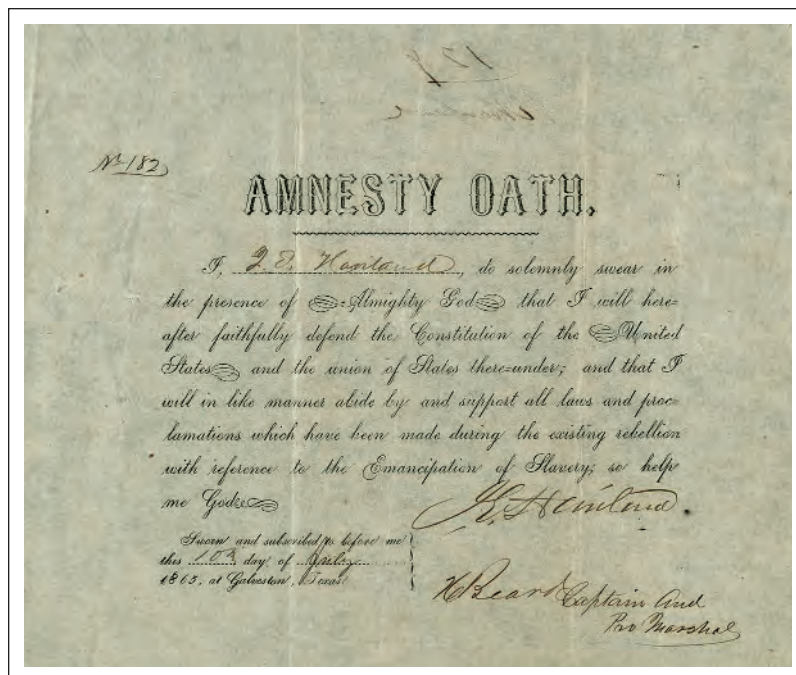 No 182
AMNESTY OATH.
I, Haviland, do solemnly swear in
the presence of Almighty God that I will here=
after faithfully defend the Constitution of the United
States and the union of States there=under; and that I
will in like manner abide by and support all laws and proc=
lamations which have been made during the existing rebellion
with reference to the Emancipation of Slavery; so help
me God.
Sworn and subscribed to before me
this 10th day of July
1865, at Galveston, Texas
Beard Captain And
Pro Marshal